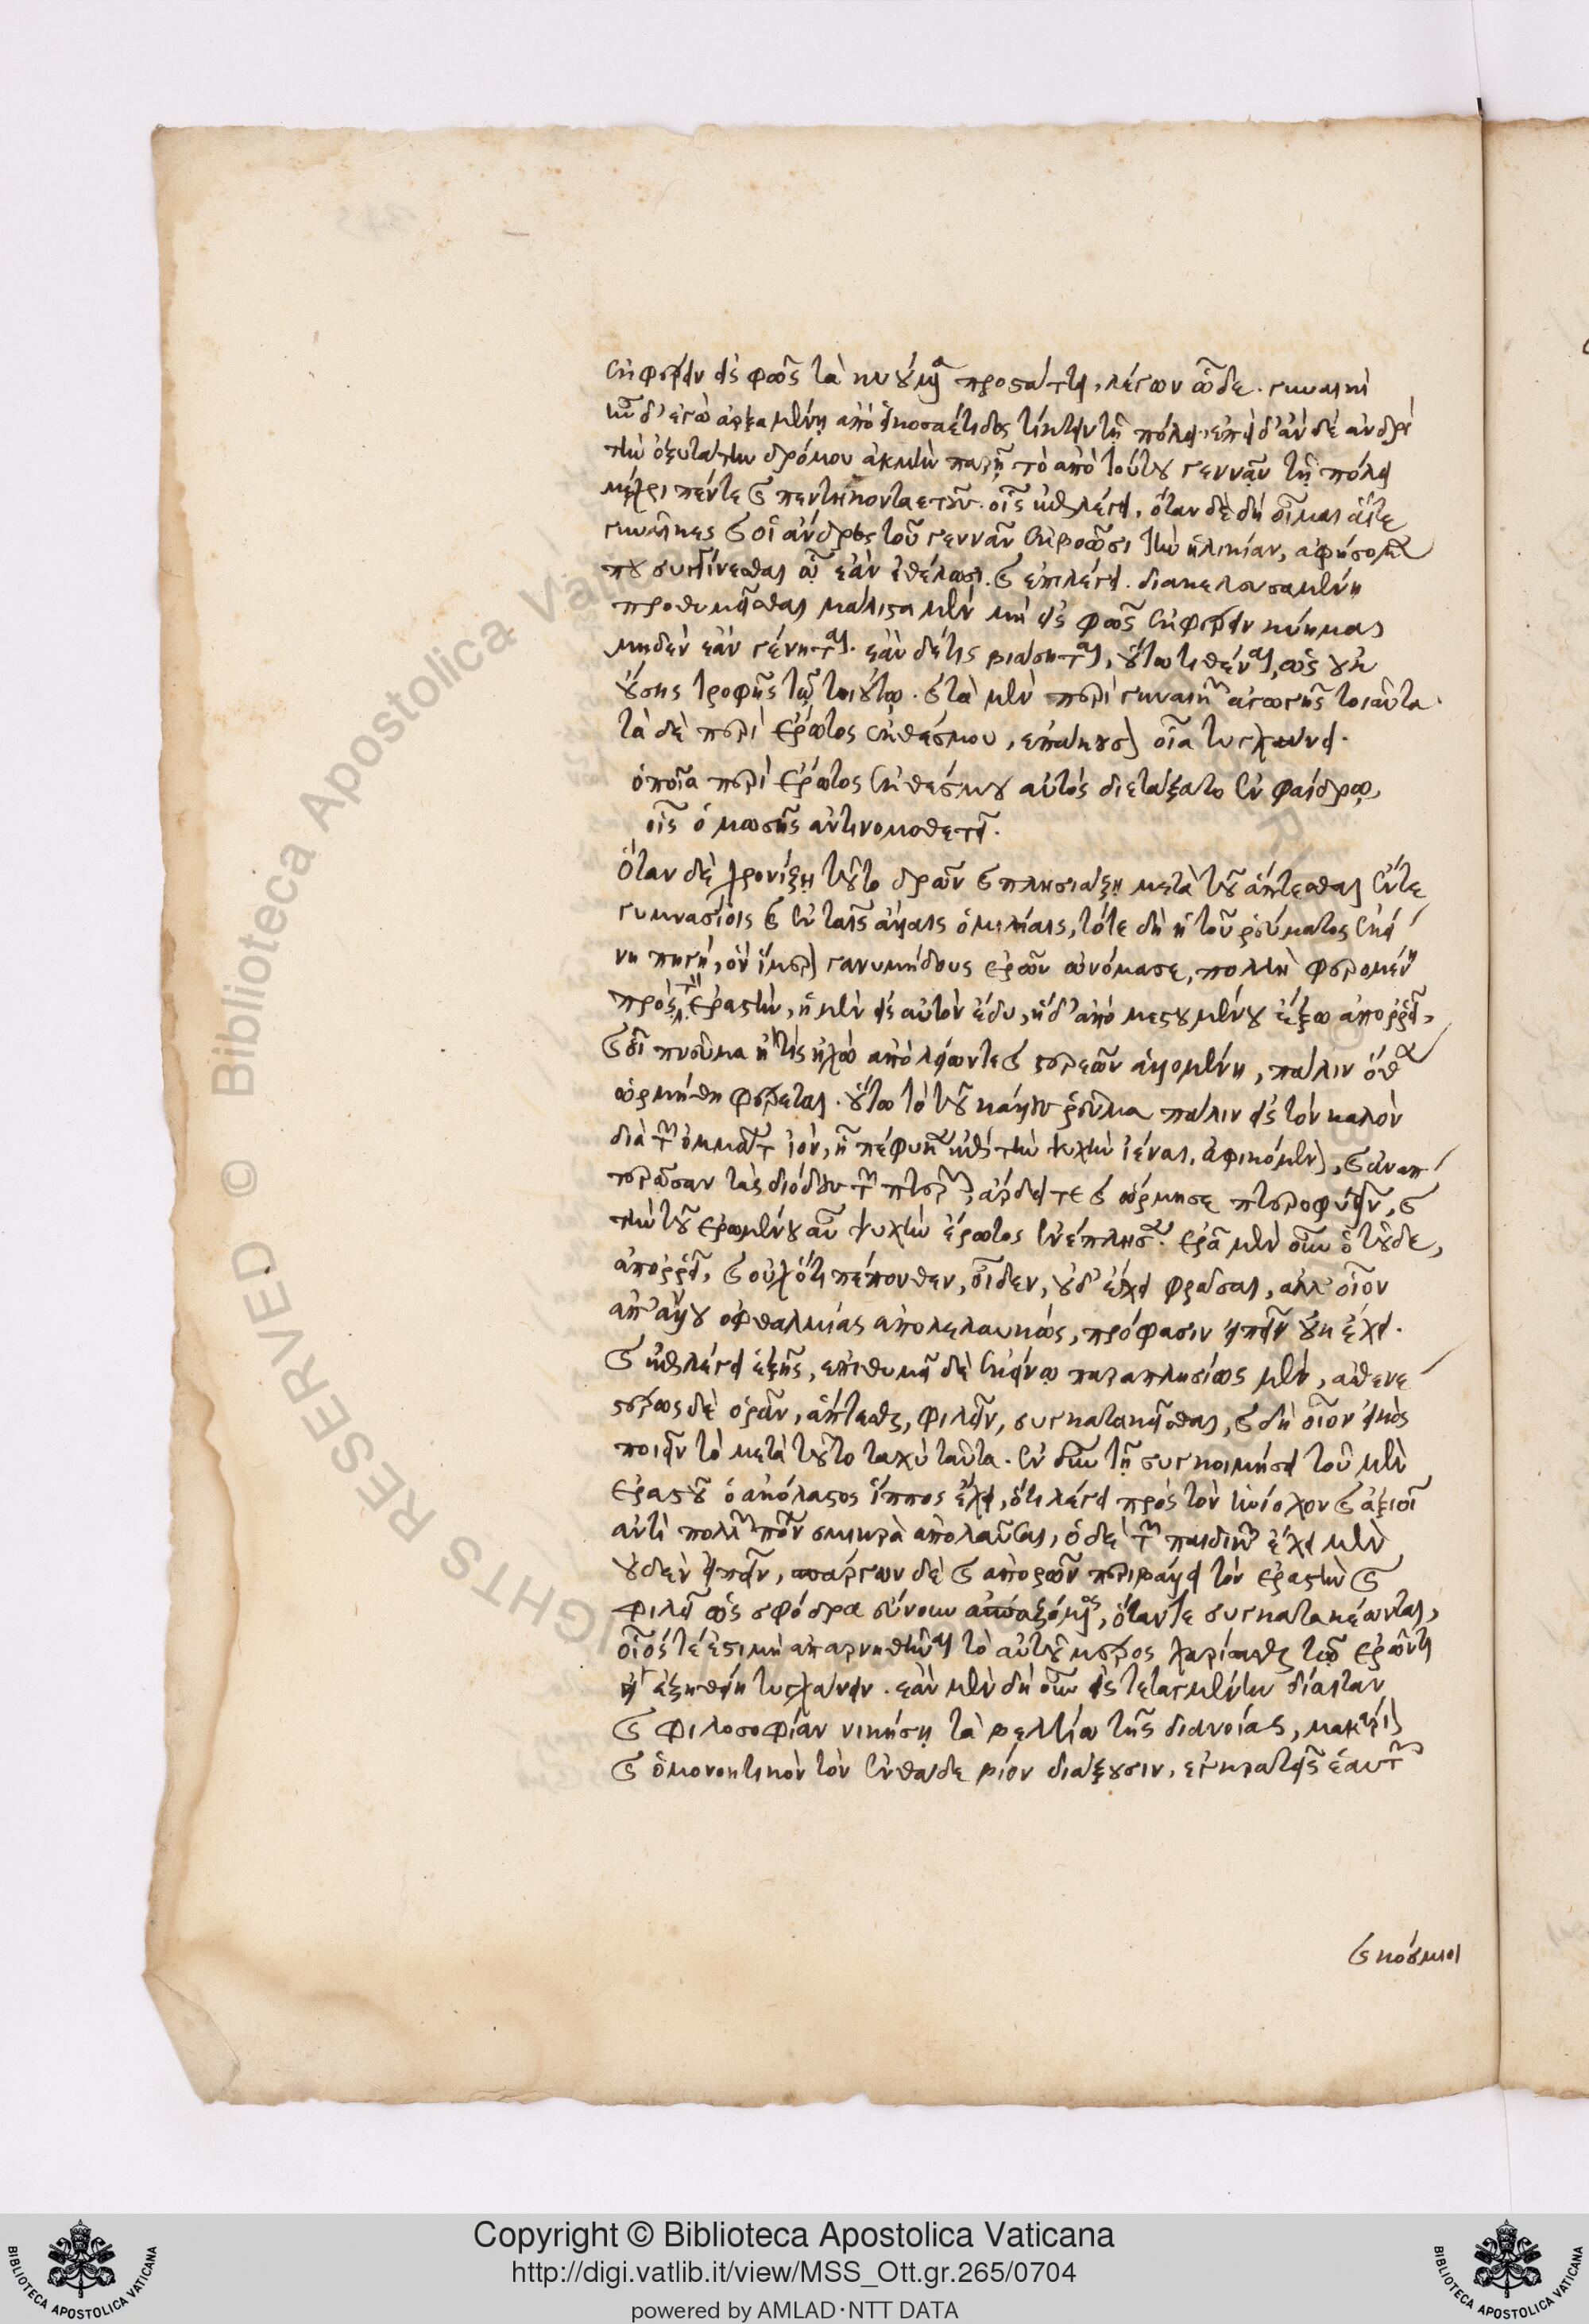 ἐκφέρειν εἰς φῶς τὰ κυούμενα προστάττει, λέγων ὧδε. γυναικὶ
μὲν δ' ἐγὼ ἀρξαμένη ἀπὸ εἰκοσαέτιδος τίκτειν τῇ πόλει· ἐπειδ' ἀν δὲ ἀνδρὶ
τὴν ὀξυτάτην δρόμου ἀκμὴν παρῇ τὸ ἀπὸ τούτου γεννᾶν τῇ πόλει
μέχρι πέντε καὶ πεντηκονταετῶν. οἷς ἐπιλέγει, ὅταν δὲ δὴ οἶμαι αἵτε
γυναῖκες καὶ οἱ ἄνδρες τοῦ γεννᾶν ἐκβῶσι τὴν ἡλικίαν, ἀφήσομεν
που συγγίνεσθαι ᾧ ἐὰν ἐθέλωσι. καὶ ἐπιλέγει. διακελευσαμένη
προθυμεῖσθαι μάλιστα μὲν μὴ εἰς φῶς ἐκφέρειν κύημα
μηδὲν ἐὰν γένηται. ἐὰν δέ τις βιάσηται, οὕτω τιθέναι, ὡς οὐκ
οὔσης τροφῆς τῷ τοιούτῳ. καὶ τὰ μὲν περὶ γυναικῶν ἀγωγῆς τοιαῦτα·
τὰ δὲ περὶ ἔρωτος ἐκθέσμου, ἐπακουσον οἷα τυγχάνει.
ὁποῖα περὶ ἔρωτος ἐκθέσμου αὐτὸς διετάξατο ἐν φαίδρῳ,
οἷς ὁ μωσῆς ἀντινομοθετεῖ.
Ὅταν δὲ χρονίζῃ τοῦτο δρῶν καὶ πλησιάζῃ μετὰ τοῦ ἅπτεσθαι ἔν τε
γυμνασίοις καὶ ἐν ταῖς ἄλλαις ὁμιλίαις, τότε δὴ ἡ τοῦ ῥεύματος ἐκεί
νη πηγή, ὃν ἵμερον γανυμήδους ἐρῶν ὠνόμασε, πολλὴ φερομένη
πρὸς τὸν ἐραστὴν, ἡ μὲν εἰς αὐτὸν ἔδυ, ἡ δ' ἀπὸ μεστουμένου ἔξω ἀπορρεῖ,
καὶ οἷον πνεῦμα ἤ τις ἠχὼ ἀπὸ λείων τε καὶ στερεῶν ἁλλομένη, πάλιν ὅθεν
ὡρμήθη φέρεται. οὕτω τὸ τοῦ κάλλους ῥεῦμα πάλιν εἰς τὸν καλὸν
διὰ τῶν ὀμμάτων ἰὸν, ᾗ πέφυκεν ἐπὶ τὴν ψυχὴν ἰέναι, ἀφικόμενον, καὶ ἀναπ
τερῶσαν τὰς διόδους τῶν πτερῶν, ἄρδει τε καὶ ὥρμησε πτεροφυεῖν, καὶ
τὴν τοῦ ἐρωμένου αὖ ψυχὴν ἔρωτος ἐνέπλησεν. ἐρᾷ μὲν οὖν ὅτου δὲ,
ἀπορεῖ, καὶ οὐχ ὅτι πέπονθεν, οἶδεν, οὐδ' ἔχει φράσαι, ἀλλ' οἷον
ἀπ' ἄλλου ὀφθαλμίας ἀπολελαυκώς, πρόφασιν εἰπεῖν οὐκ ἔχει.
καὶ ἐπιλέγει ἑξῆς, ἐπιθυμεῖ δὲ ἐκείνῳ παραπλησίως μὲν, ἀσθενε
στέρως δὲ ὁρᾶν, ἅπτεσθαι, φιλεῖν, συγκατακεῖσθαι, καὶ δὴ οἷον εἰκὸς
ποιεῖν τὸ μετὰ τοῦτο ταχὺ ταῦτα. ἐν οὖν τῇ συγκοιμήσει τοῦ μὲν
ἐραστοῦ ὁ ἀκόλαστος ἵππος ἔχει, ὅτι λέγει πρὸς τὸν ἡνίοχον καὶ ἀξιοῖ
ἀντὶ πολλῶν πόνων σμικρὰ ἀπολαῦσαι, ὁ δὲ τῶν παιδικῶν ἔχει μὲν
οὐδὲν εἰπεῖν, σπαργῶν δὲ καὶ ἀπορῶν περιβάλλει τὸν ἐραστὴν καὶ
φιλεῖ ὡς σφόδρα εὔνουν ἀσπαζόμενος, ὅταν τε συγκατακέωνται,
οἷός τέ ἐστι μὴ ἀπαρνηθῆναι τὸ αὐτοῦ μέρος χαρίσασθαι τῷ ἐρῶντι
εἰ δεηθείη τυχεῖν. ἐὰν μὲν δὴ οὖν εἰς τεταγμένην δίαιταν
καὶ φιλοσοφίαν νικήσῃ τὰ βελτίω τῆς διανοίας, μακάριον
καὶ ὁμονοητικὸν τὸν ἐνθάδε βίον διάξουσιν, ἐγκρατεῖς ἑαυτῶν
καὶ κόσμιοι
Copyright © Biblioteca Apostolica Vaticana
http://digi.vatlib.it/view/MSS_Ott.gr.265/0704
powered by AMLAD·NTT DATA